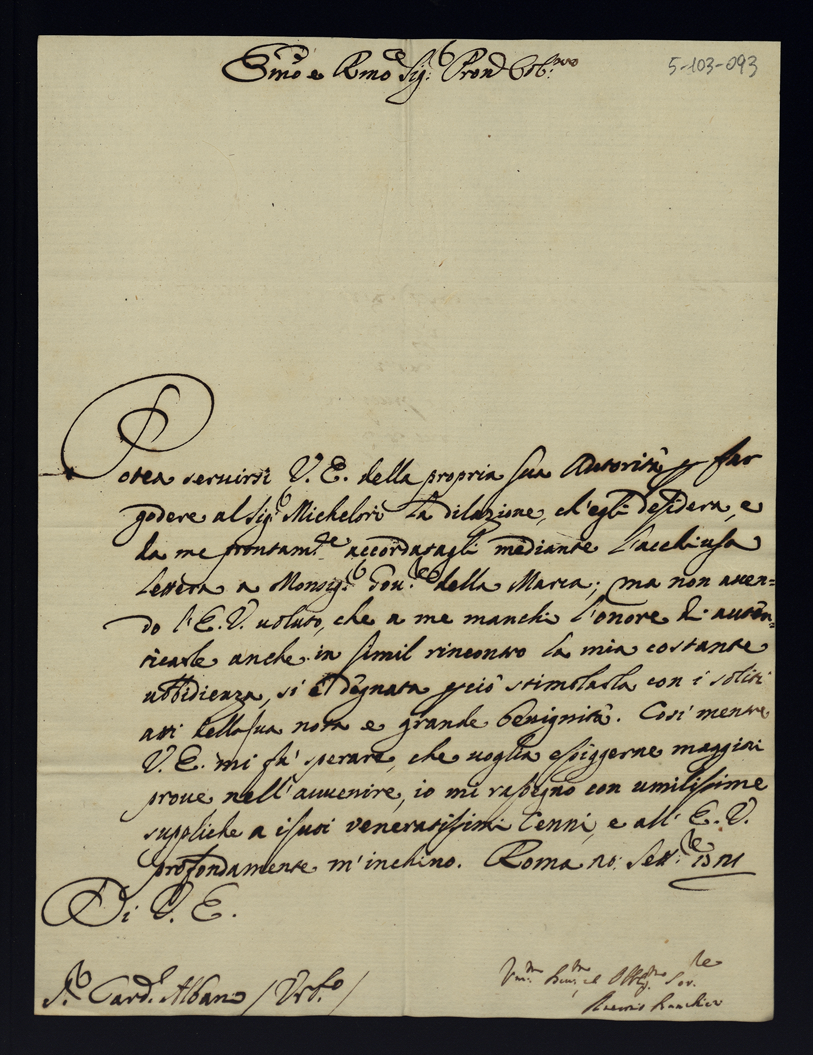 Emo e Rmo Sig.r Pron Col.mo
5-103-093
Potea seruirsi V. E. della propria sua Autorità p far
godere al Sig.r Michelori la dilazione, ch'egli desidera, e
da me prontam.te accordatagli mediante l'acchiusa
lettera a Monsig.r Gou.re della Marca; ma non auen=
do l'E. V. uoluto, che a me manchi l'onore di auten=
ticarle anche in simil rincontro la mia costante
ubbidienza, si è degnata p ciò stimolarla con i soliti
atti della sua nota e grande benignità. Così mentre
V. E. mi fà sperare, che uoglia esiggerne maggiori
proue nell'auuenire, io mi rasegno con umilissime
suppliche a i suoi veneratissimi Cenni, e all' E. V.
profondamente m'inchino. Roma Sett.re
Di V. E.
S.r Card.l Albano / Urb.o /
Um.mo Deu.mo ed Obblig.mo Ser.re